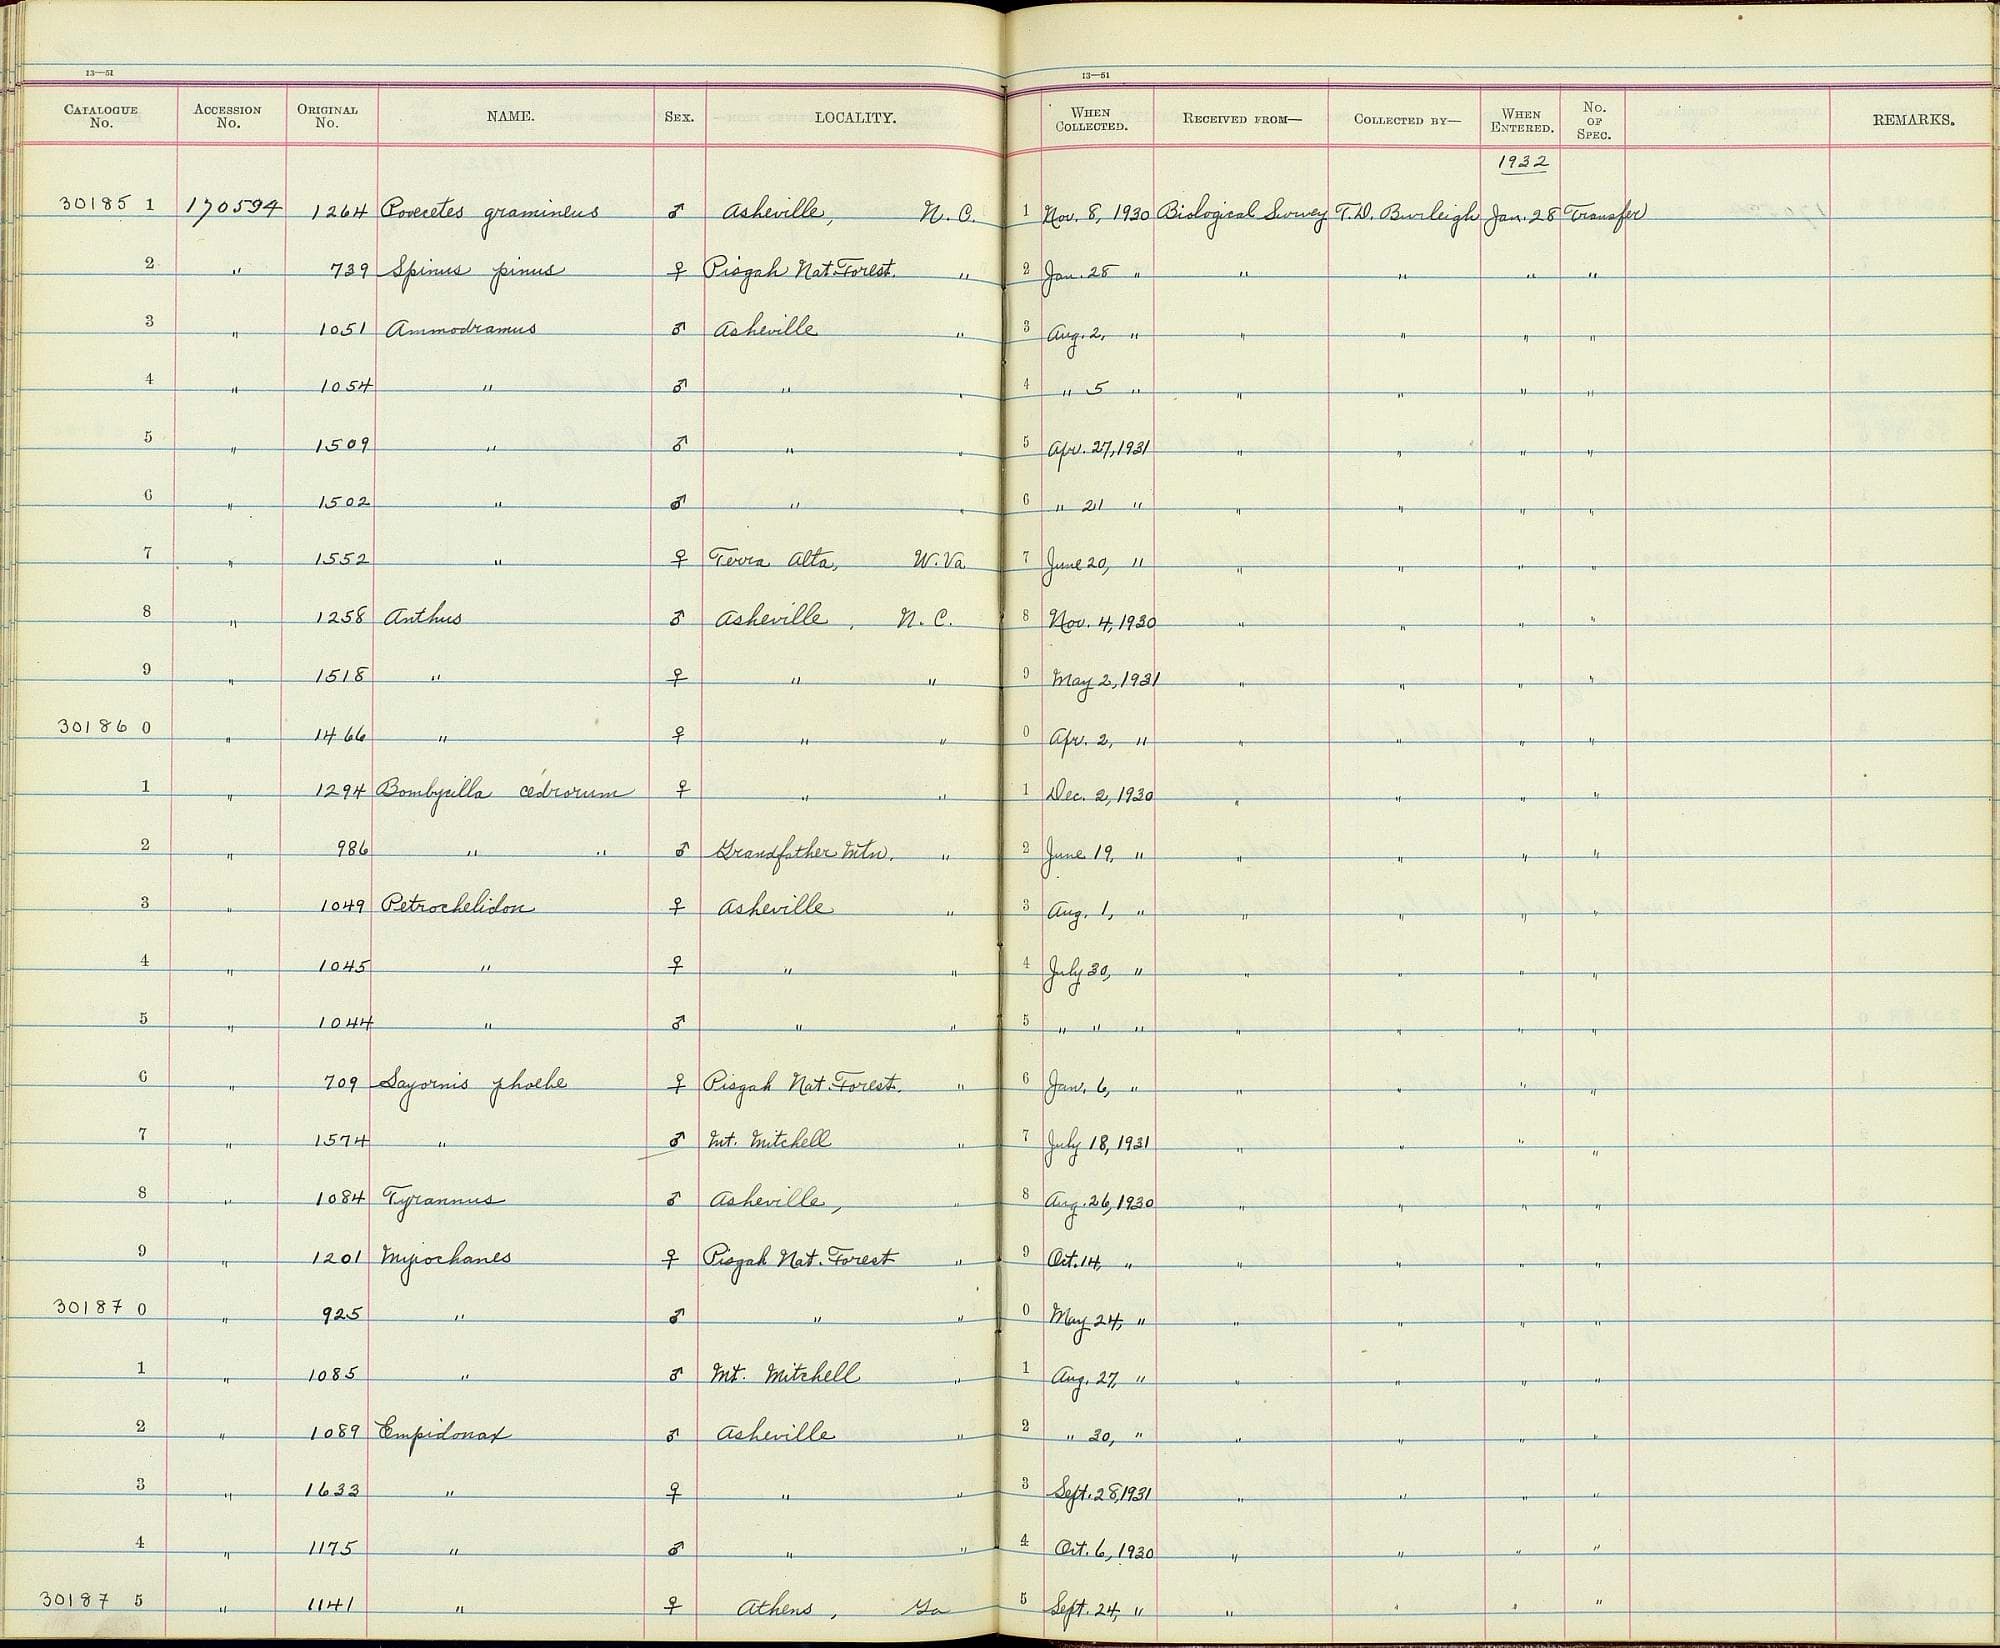 13—51 13—51
CATALOGUE No. ACCESSION No. ORIGINAL No. NAME. SEX. LOCALITY. WHEN COLLECTED. RECEIVED FROM— COLLECTED BY— WHEN ENTERED. No. OF SPEC. REMARKS.
1932
30185 1 170594 1264 Poocetes gramineus ♂ Asheville, N. C. 1 Nov. 8, 1930 Biological Survey T.D. Burleigh Jan. 28 Transfer
2 " 739 Spinus pinus ♀ Pisgah Nat. Forest. " 2 Jan. 28 " " " " "
3 " 1051 Ammodramus ♂ Asheville " 3 Aug. 2, " " " " "
4 " 1054 " ♂ " " 4 " 5 " " " " "
5 " 1509 " ♂ " " 5 Apr. 27, 1931 " " " "
6 " 1502 " ♂ " " 6 " 21 " " " " "
7 " 1552 " ♀ Terra Alta, W. Va. 7 June 20, " " " " "
8 " 1258 Anthus ♂ Asheville, N. C. 8 Nov. 4, 1930 " " " "
9 " 1518 " ♀ " " 9 May 2, 1931 " " " "
30186 0 " 1466 " ♀ " " 0 Apr. 2, " " " " "
1 " 1294 Bombycilla cedrorum ♀ " " 1 Dec. 2, 1930 " " " "
2 " 986 " " ♂ Grandfather Mtn. " 2 June 19, " " " " "
3 " 1049 Petrochelidon ♀ Asheville " 3 Aug. 1, " " " " "
4 " 1045 " ♀ " " 4 July 30, " " " " "
5 " 1044 " ♂ " " 5 " " " " " " "
6 " 709 Sayornis phoebe ♀ Pisgah Nat. Forest. " 6 Jan. 6, " " " " "
7 " 1574 " ♂ Mt. Mitchell " 7 July 18, 1931 " " " "
8 " 1084 Tyrannus ♂ Asheville, " 8 Aug. 26, 1930 " " " "
9 " 1201 Myiochanes ♀ Pisgah Nat. Forest " 9 Oct. 14, " " " " "
30187 0 " 925 " ♂ " " 0 May 24, " " " " "
1 " 1085 " ♂ Mt. Mitchell " 1 Aug. 27, " " " " "
2 " 1089 Empidonax ♂ Asheville " 2 " 30, " " " " "
3 " 1633 " ♀ " " 3 Sept. 28, 1931 " " " "
4 " 1175 " ♂ " " 4 Oct. 6, 1930 " " " "
30187 5 " 1141 " ♀ Athens, Ga 5 Sept. 24, " " " " "